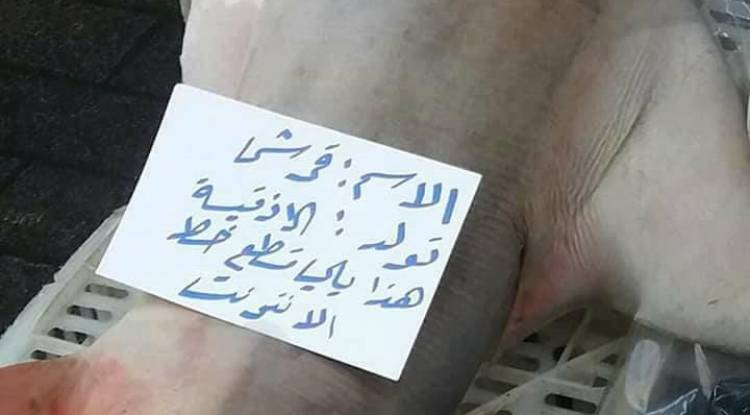 الاسم : قرش
تولد : الاذقية
هذا يلي قطع خط
الانترنت